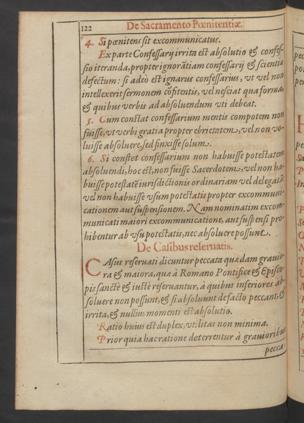 122 De Sacramento Pœnitentiæ.
4. Si pœnitens sit excommunicatus.
Ex parte Confessarij irrita est absolutio & confes-
sio iteranda, propter ignorãtiam confessarij & scientiæ
defectum: si adeò est ignarus confessarius, ut vel non
intellexerit sermonem cõfitentis, vel nesciat qua forma
& quibus verbis ad absoluendum uti debeat.
5. Cum constat confessarium mentis compotem non
fuisse, ut verbi gratia propter ebrietatem, vel non vo-
luisse absoluere, sed finxisse solum.
6. Si constet confessarium non habuisse potestatem
absoluendi, hoc est, non fuisse Sacerdotem, vel non ha-
buisse potestatẽ iurisdictionis ordinariam vel delegatã
vel non habuisse usum potestatis propter excommuni-
cationem aut suspensionem. Nam nominatim excom-
municati maiori excommunicatione, aut suspensi pro-
hibentur ab usu potestatis, nec absoluere possunt.
De Casibus reseruatis.
Casus reseruati dicuntur peccata quædam grauio-
ra & maiora, qua à Romano Pontifice & Episco-
pis sanctè & iustè reseruantur, à quibus inferiores ab-
soluere non possunt, & si absoluunt de facto peccant, &
irrita, & nullius momenti est absolutio.
Ratio huius est duplex, utilitas non minima.
Prior quia hac ratione deterrentur à grauioribus
pecca